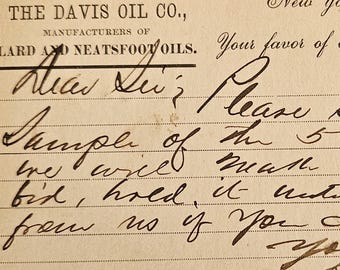 THE DAVIS OIL CO.,
New Yo
MANUFACTURERS OF
LARD AND NEATSFOOT OILS.
Your favor of
Dear Sir; Please
Sample of the 5
we will
bid, hold it
from us if you
Yo